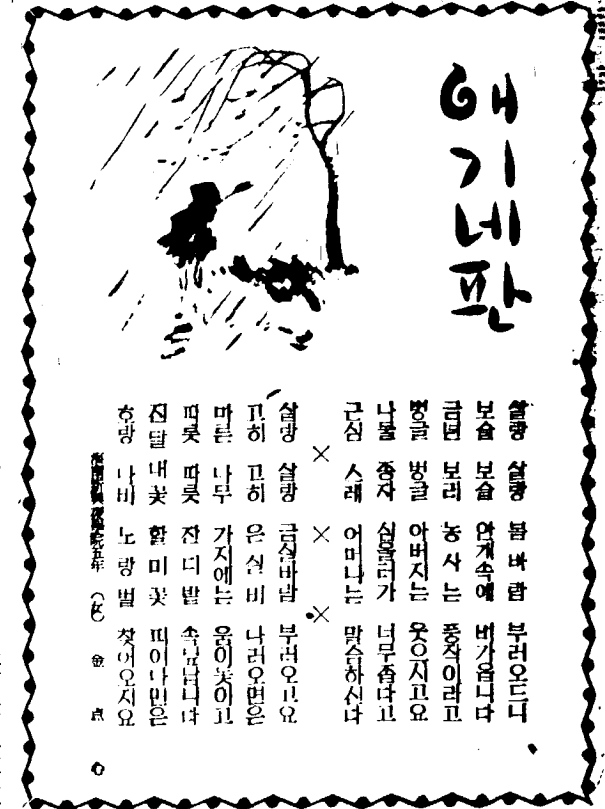 애기네판
살랑 살랑 봄바람 부러오드니
보슬 보슬 안개속에 비가옵니다
금년 보리 농사는 풍작이라고
벙글 벙글 아버지는 웃으시고요
나물 종자 심을러가 너무좁다고
근심 스레 어머니는 말슴하신다
× × ×
살랑 살랑 금실바람 부러오고요
고히 고히 은실비 나러오면은
마른 나무 가지에는 움이돗이고
따뜻 따뜻 잔디밭 속닢납니다
진달내꽃 할미꽃 피이나면은
호랑나비 노랑벌 찾어오지요
五年 (女) 金 点